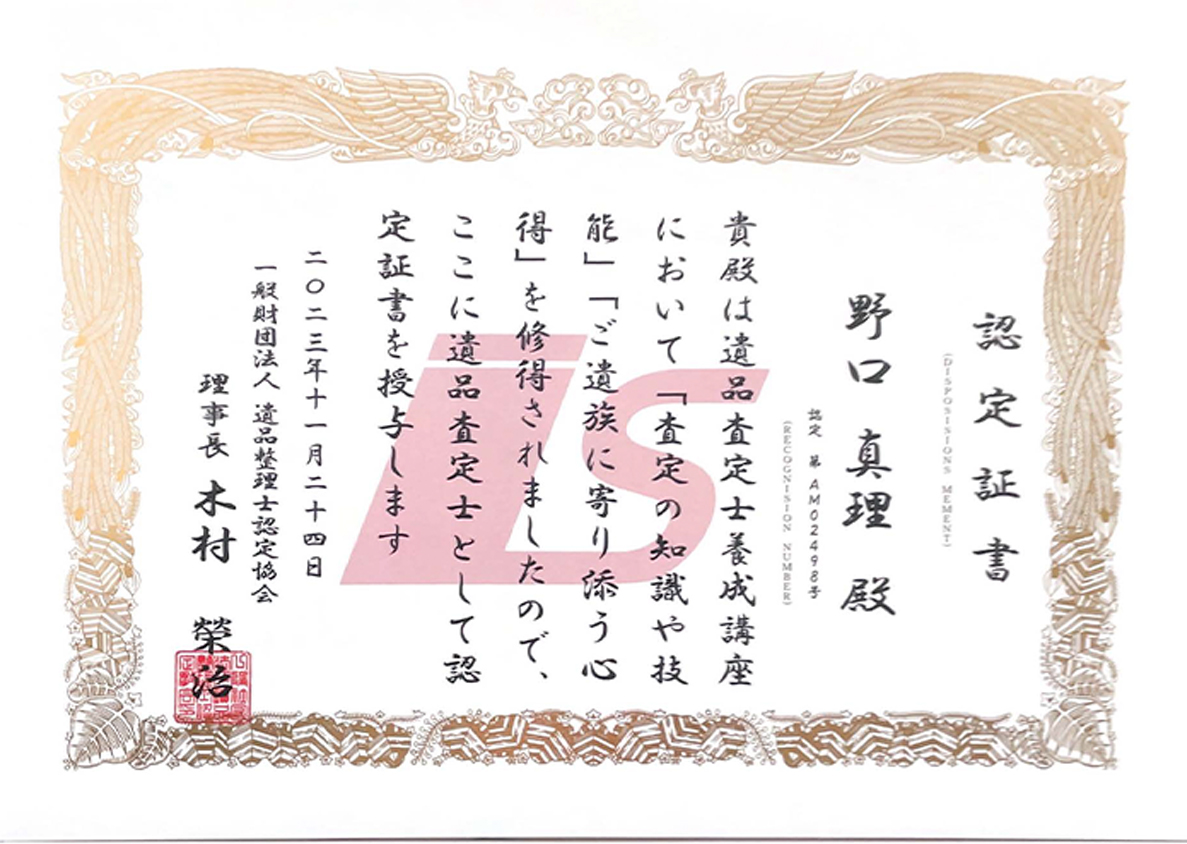 認定証書
(DISPOSISIONS MEMENT)
野口 真理 殿
認定 第 AM02498号
(RECOGNISION NUMBER)
貴殿は遺品査定士養成講座
において「査定の知識や技
能」「ご遺族に寄り添う心
得」を修得されましたので、
ここに遺品査定士として認
定証書を授与します
二〇二三年十一月二十四日
一般財団法人 遺品整理士認定協会
理事長 木村 榮治
is